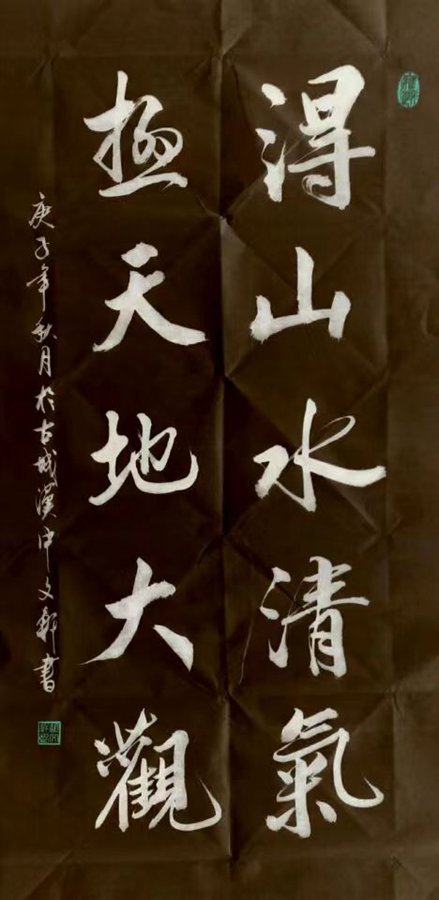 得山水清氣
極天地大觀
庚子年秋月於古城漢中文軒書